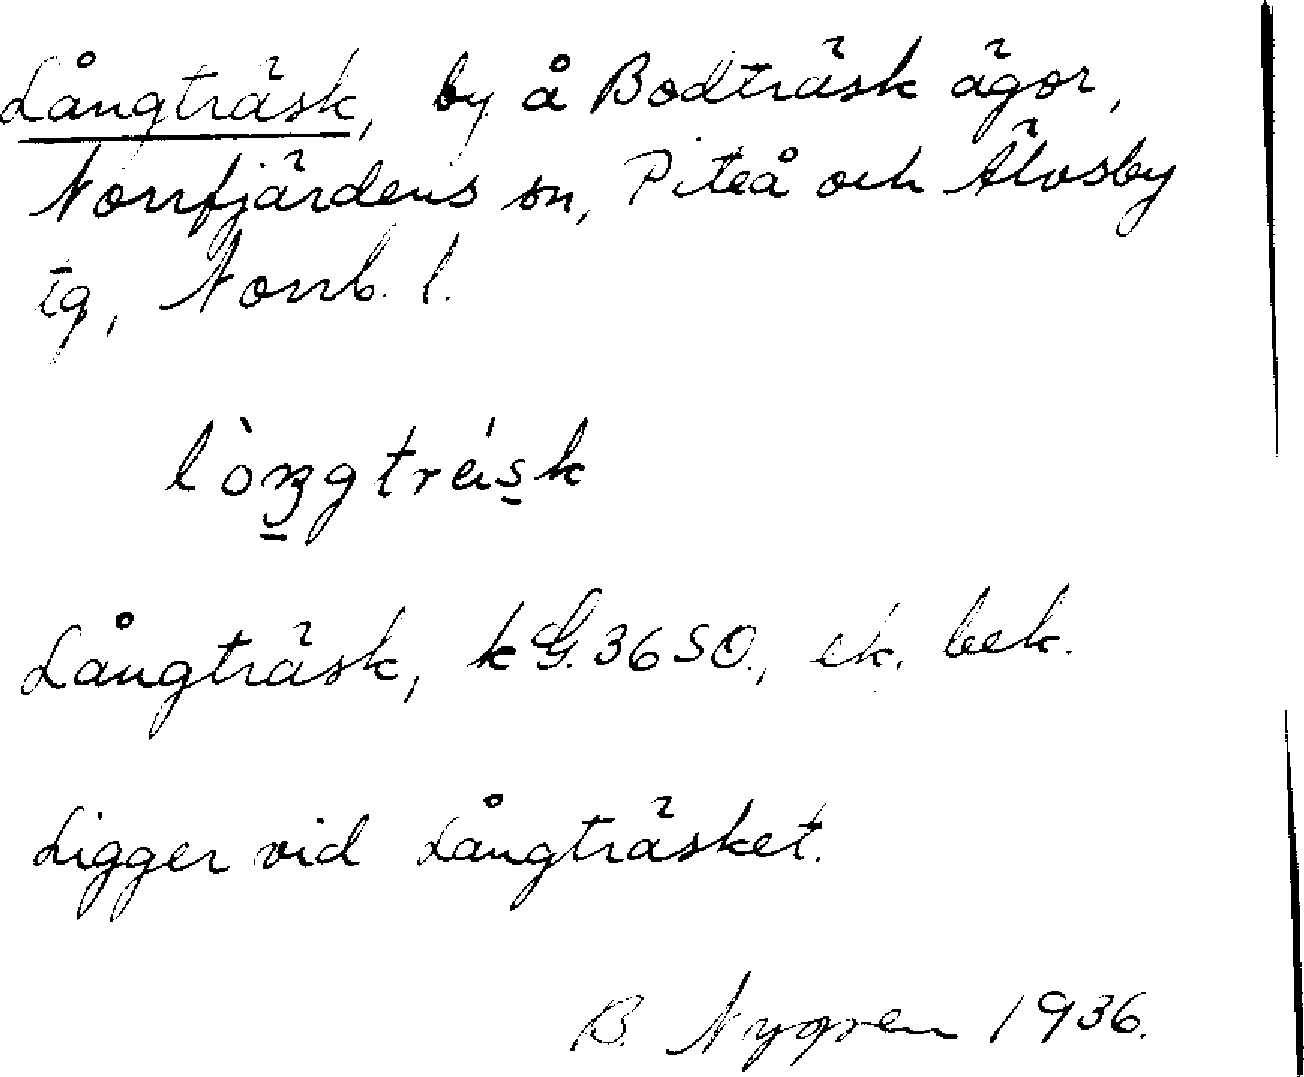 Långträsk, by å Bodträsk ägor,
Norrfjärdens sn, Piteå och Älvsby
tg, Norrb. l.
lòŋgträ́sk
Långträsk, kG. 36 SO., ek. bek.
Ligger vid Långträsket.
B. Nygren 1936.